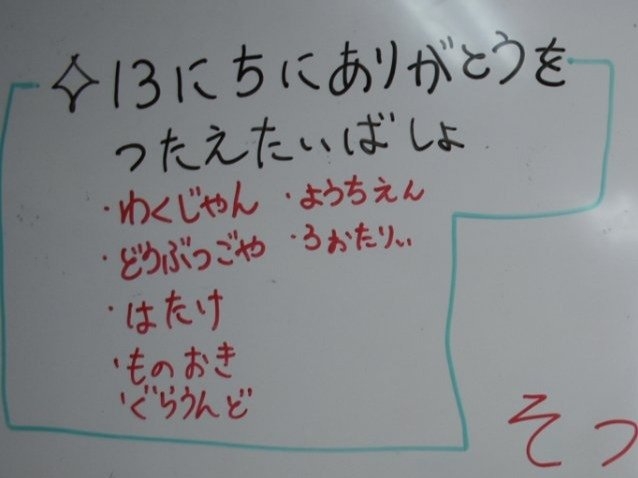 ✧13にちにありがとうを
つたえたいばしょ
・わくじゃん
・どうぶつごや
・はたけ
・ものおき
・ぐらうんど
・ようちえん
・ろおたりぃ
そつ